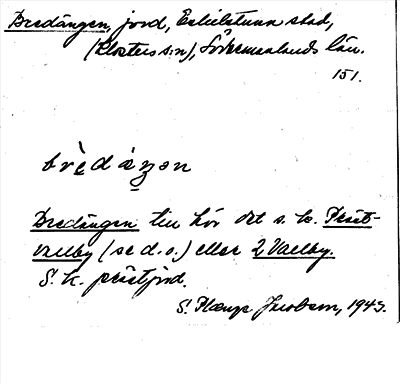 Bredängen, jord, Eskilstuna stad,
(Klosters sn), Södermanlands län.
151.
brèdäŋən
Bredängen tillhör det s. k. Präst-
vallby (se d. o.) eller 2 Vallby.
S. k. prästjord.
S. Jacobsen, 1943.